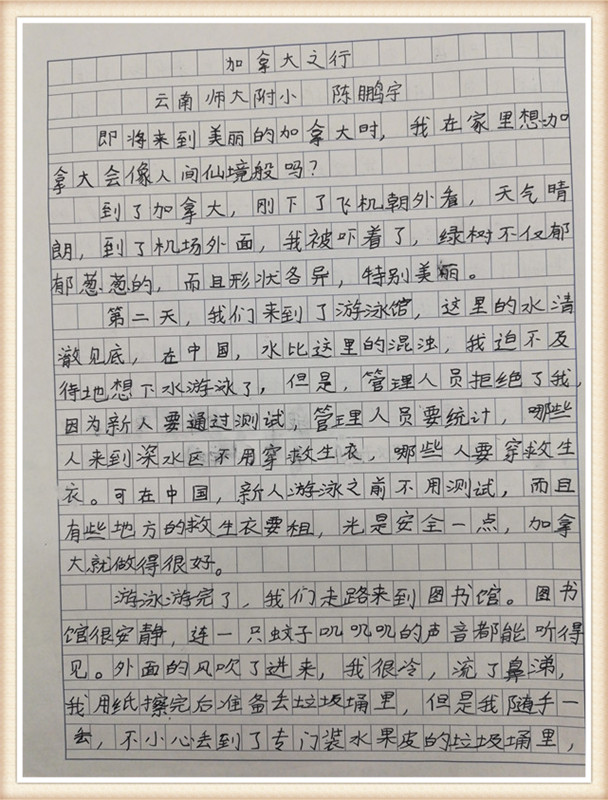 加拿大之行
云南师大附小 陈鹏宇
即将来到美丽的加拿大时，我在家里想加
拿大会像人间仙境般吗？
到了加拿大，刚下了飞机朝外看，天气晴
朗，到了机场外面，我被吓着了，绿树不仅郁
郁葱葱的，而且形状各异，特别美丽。
第二天，我们来到了游泳馆，这里的水清
澈见底，在中国，水比这里的混浊，我迫不及
待地想下水游泳了，但是，管理人员拒绝了我，
因为新人要通过测试，管理人员要统计，哪些
人来到深水区不用穿救生衣，哪些人要穿救生
衣。可在中国，新人游泳之前不用测试，而且
有些地方的救生衣要租，光是安全一点，加拿
大就做得很好。
游泳游完了，我们走路来到图书馆。图书
馆很安静，连一只蚊子叽叽叽的声音都能听得
见。外面的风吹了进来，我很冷，流了鼻涕，
我用纸擦完后准备丢垃圾埇里，但是我随手一
丢，不小心丢到了专门装水果皮的垃圾埇里，